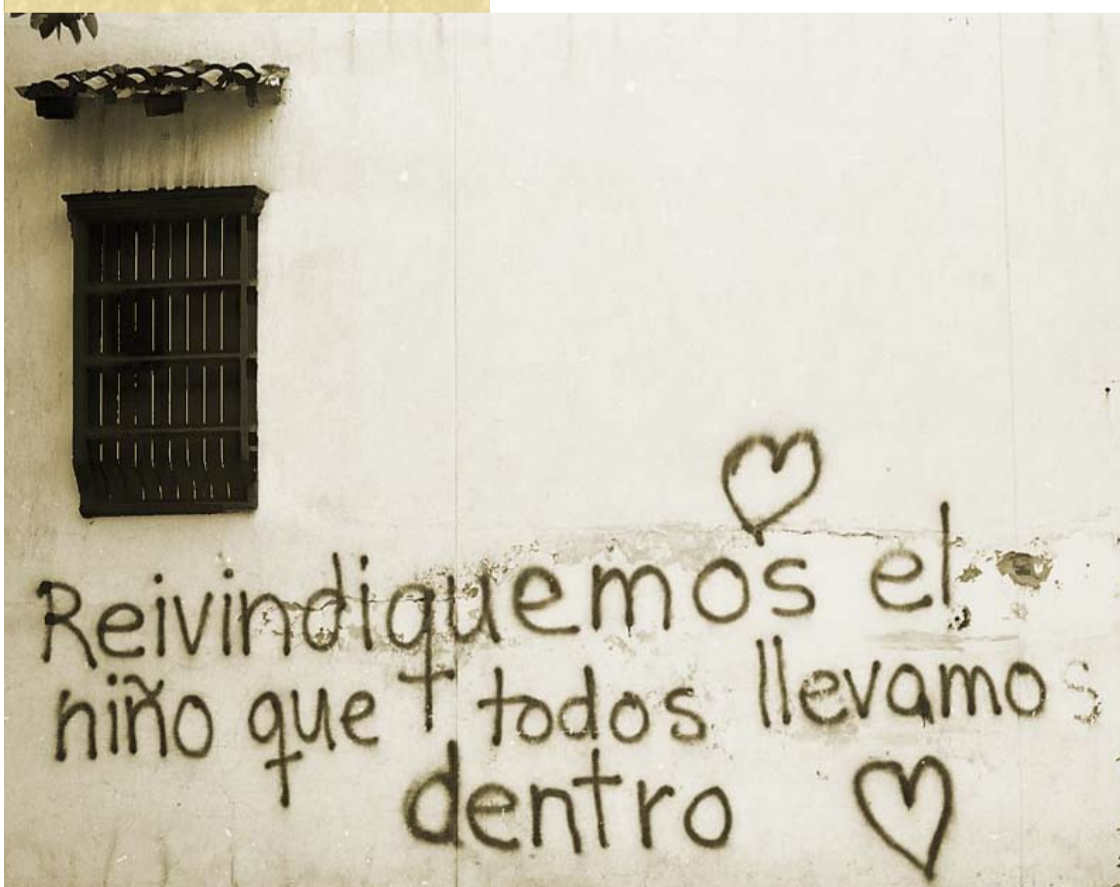 Reivindiquemos el
niño que todos llevamos
dentro